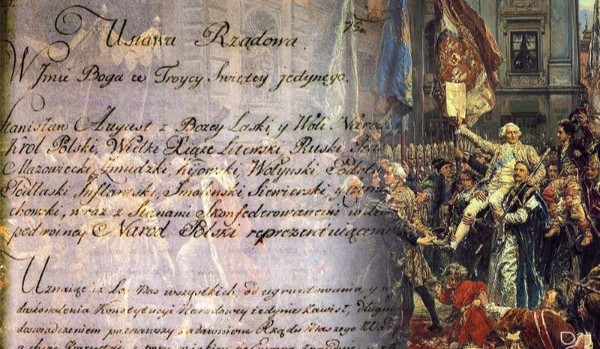 Ustawa Rządowa.
W Imie Boga w Troycy Swiętey jedynego.
Stanisław August z Bozey Łaski y Woli
Krol Polski, Wielki Xiąże Litewski, Ruski
Mazowiecki, Zmudzki, Kijowski, Wołynski
Podlaski, Smolenski, Siewierski y
chowski, wraz z Stanami Skonfederowanemi w
podwoyney Narod Polski reprezentuiącemi
Uznaiąc iż los Nas wszystkich, od ugruntowania y
doskonalenia Konstytucyi Narodowey iedynie zawisł, długim
doswiadczeniem poznawszy zadawnione Rządu Naszego